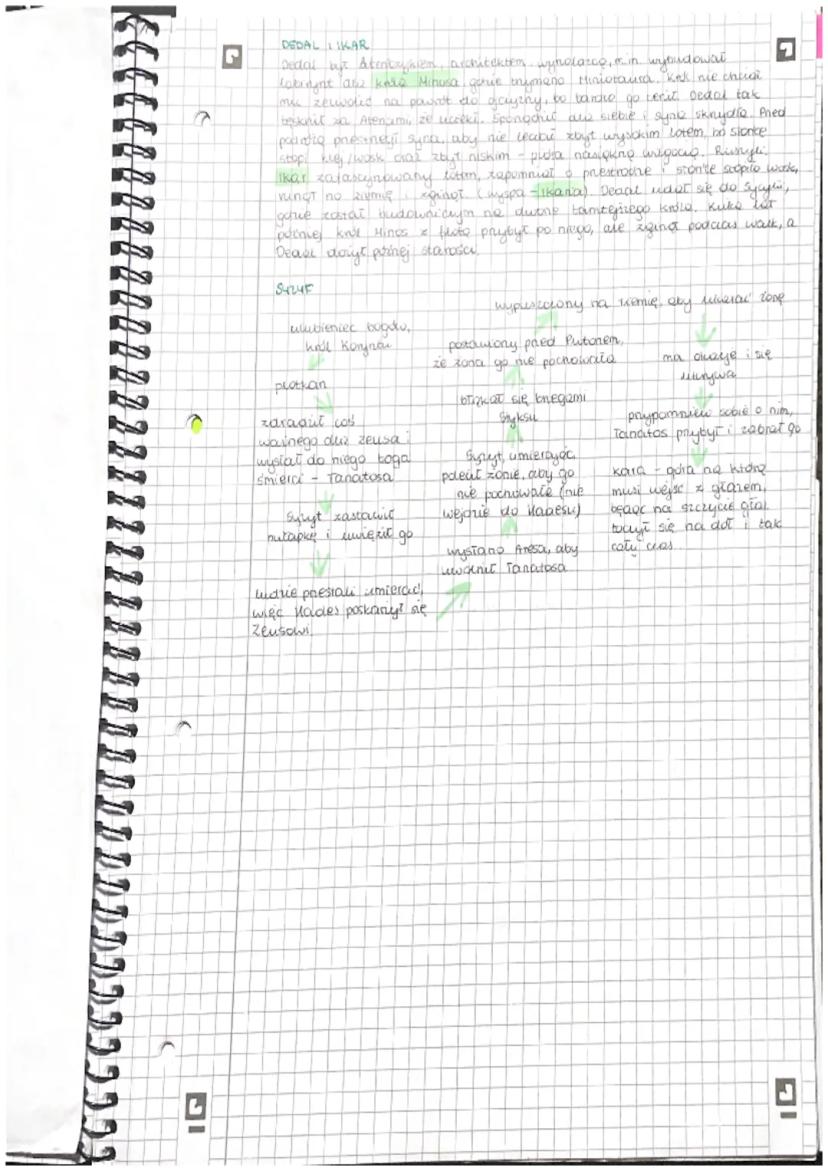 DEDAL I IKAR
Dedal był Ateńczykiem, architektem, wynalazcą, m.in. wybudował
labirynt dla króla Minosa, gdzie trzymano Minotaura. Król nie chciał
mu zezwolić na powrót do ojczyzny, bo bardzo go cenił. Dedal tak
tęsknił za Atenami, że uciekł. Sporządził dla siebie i syna skrzydła. Przed
podróżą przestrzegł syna, aby nie leciał zbyt wysokim lotem, bo słońce
stopi klej/wosk oraz zbyt niskim - pióra nasiąkną wilgocią. Ruszyli.
Ikar zafascynowany lotem, zapomniał o przestrodze i słońce stopiło wosk,
runął na ziemię i zginął. (wyspa - Ikaria). Dedal udał się do Sycylii,
gdzie został budowniczym na dworze tamtejszego króla. Kilka lat
później król Minos z flotą przybył po niego, ale zginął podczas walk, a
Dedal dożył późnej starości.
SYZYF
ulubieniec bogów,
król Koryntu
plotkarz
zdradził coś
ważnego dla Zeusa i
wysłał do niego boga
śmierci - Tanatosa
Syzyf zastawił
pułapkę i uwięził go
ludzie przestali umierać,
więc Hades poskarżył się
Zeusowi.
wysłano Aresa, aby
uwolnił Tanatosa
Syzyf, umierając,
polecił żonie, aby go
nie pochowała (nie
wejdzie do Hadesu)
błąkał się brzegami
Styksu
postawiony przed Plutonem,
że żona go nie pochowała
wypuszczony na ziemię, aby ukarać żonę
ma okazję i się
ukrywa
przypomnieli sobie o nim,
Tanatos przybył i zabrał go
kara - góra na którą
musi wejść z głazem,
będąc na szczycie głaz
toczył się na dół i tak
cały czas.